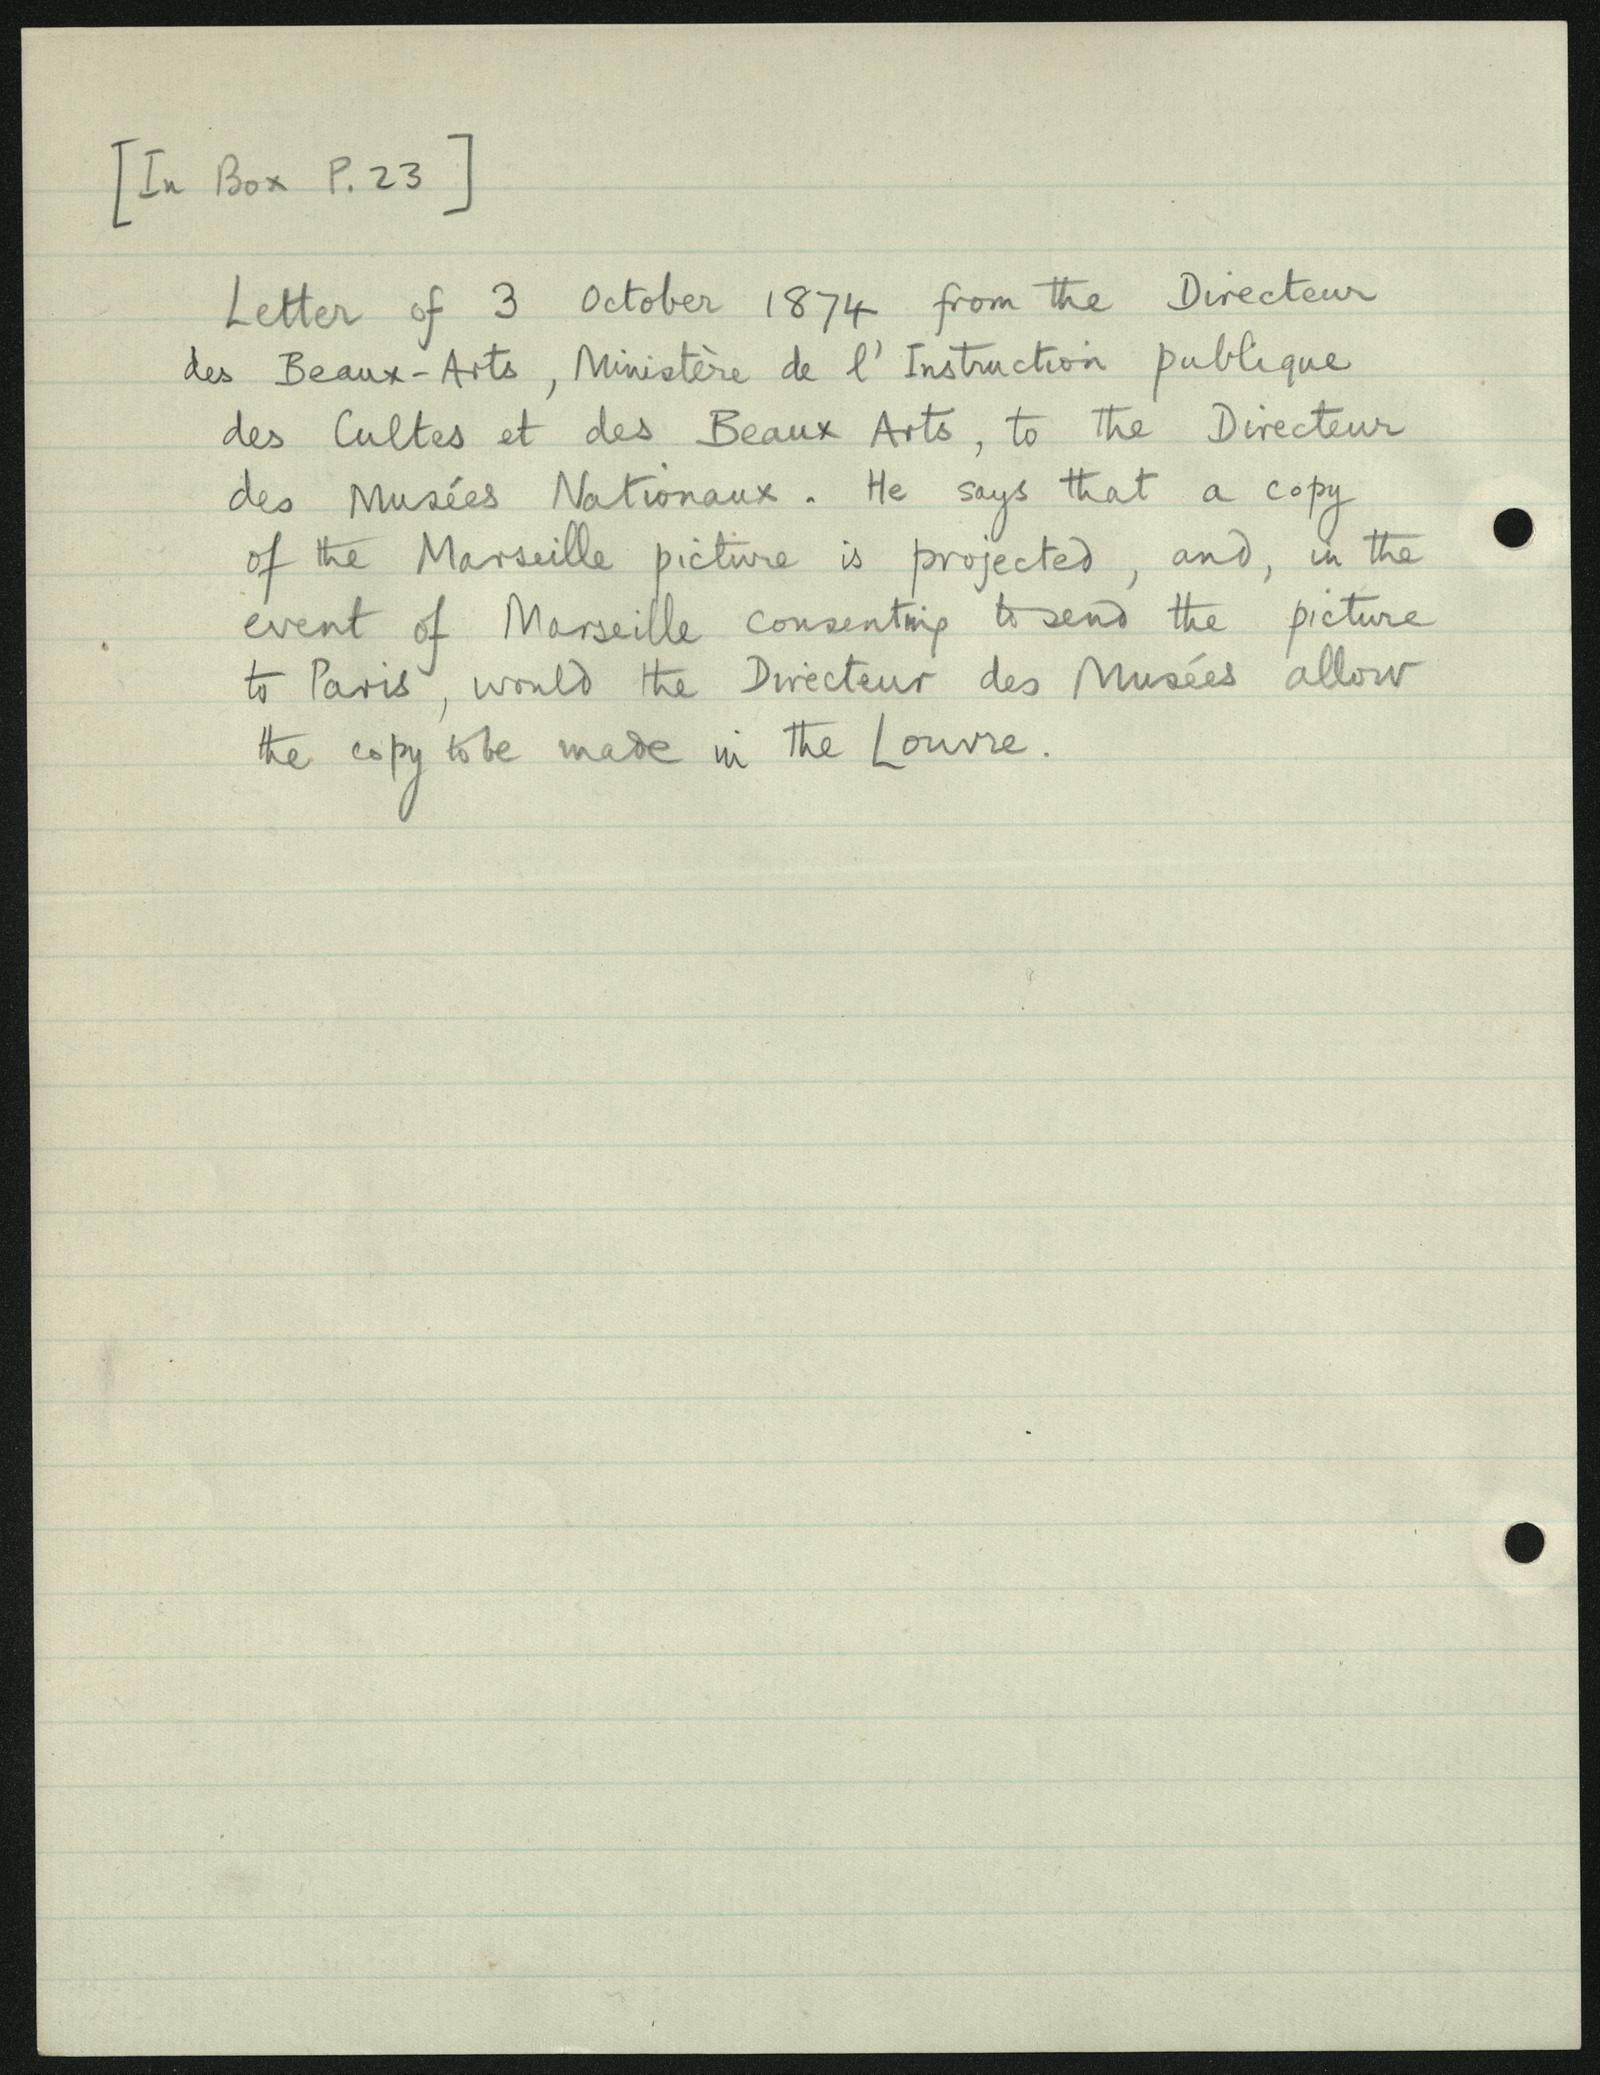 [In Box P.23]
Letter of 3 October 1874 from the Directeur
des Beaux-Arts, Ministère de l'Instruction publique
des Cultes et des Beaux Arts, to the Directeur
des Musées Nationaux. He says that a copy
of the Marseille picture is projected, and, in the
event of Marseille consenting to send the picture
to Paris, would the Directeur des Musées allow
the copy to be made in the Louvre.